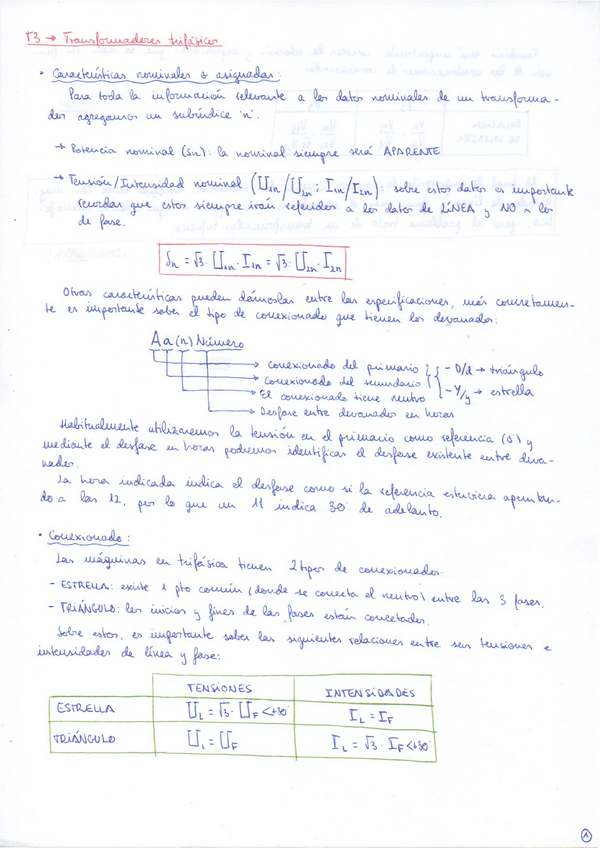 T3 → Transformadores trifásicos
• Características nominales o asignadas:
Para toda la información relevante a los datos nominales de un transforma-
dor agregamos un subíndice 'n'.
→ Potencia nominal (Sn): la nominal siempre será APARENTE
→ Tensión/Intensidad nominal (U1n/U2n ; I1n/I2n): sobre estos datos es importante
recordar que estos siempre irán referidos a los datos de LÍNEA y NO a los
de fase.
Sn = √3 · U1n · I1n = √3 · U2n · I2n
Otras características pueden dárnoslas entre las especificaciones, más concretamen-
te es importante saber el tipo de conexionado que tienen los devanados:
Aa(n) Número
→ conexionado del primario
→ conexionado del secundario
→ El conexionado tiene neutro
→ Desfase entre devanador en horas
- D/d → triángulo
- Y/y → estrella
Habitualmente utilizaremos la tensión en el primario como referencia (0°) y
mediante el desfase en horas podremos identificar el desfase existente entre deva-
nador.
La hora indicada indica el desfase como si la referencia estuviera apuntan-
do a las 12, por lo que un 11 indica 30° de adelanto.
• Conexionado:
Las máquinas en trifásica tienen 2 tipos de conexionados:
- ESTRELLA: existe 1 pto común (donde se conecta el neutro) entre las 3 fases.
- TRIÁNGULO: los inicios y fines de las fases están conectados.
Sobre estos, es importante saber las siguientes relaciones entre sus tensiones e
intensidades de línea y fase:
TENSIONES INTENSIDADES
ESTRELLA UL = √3 · UF <+30° IL = IF
TRIÁNGULO UL = UF IL = √3 · IF <+30°
1